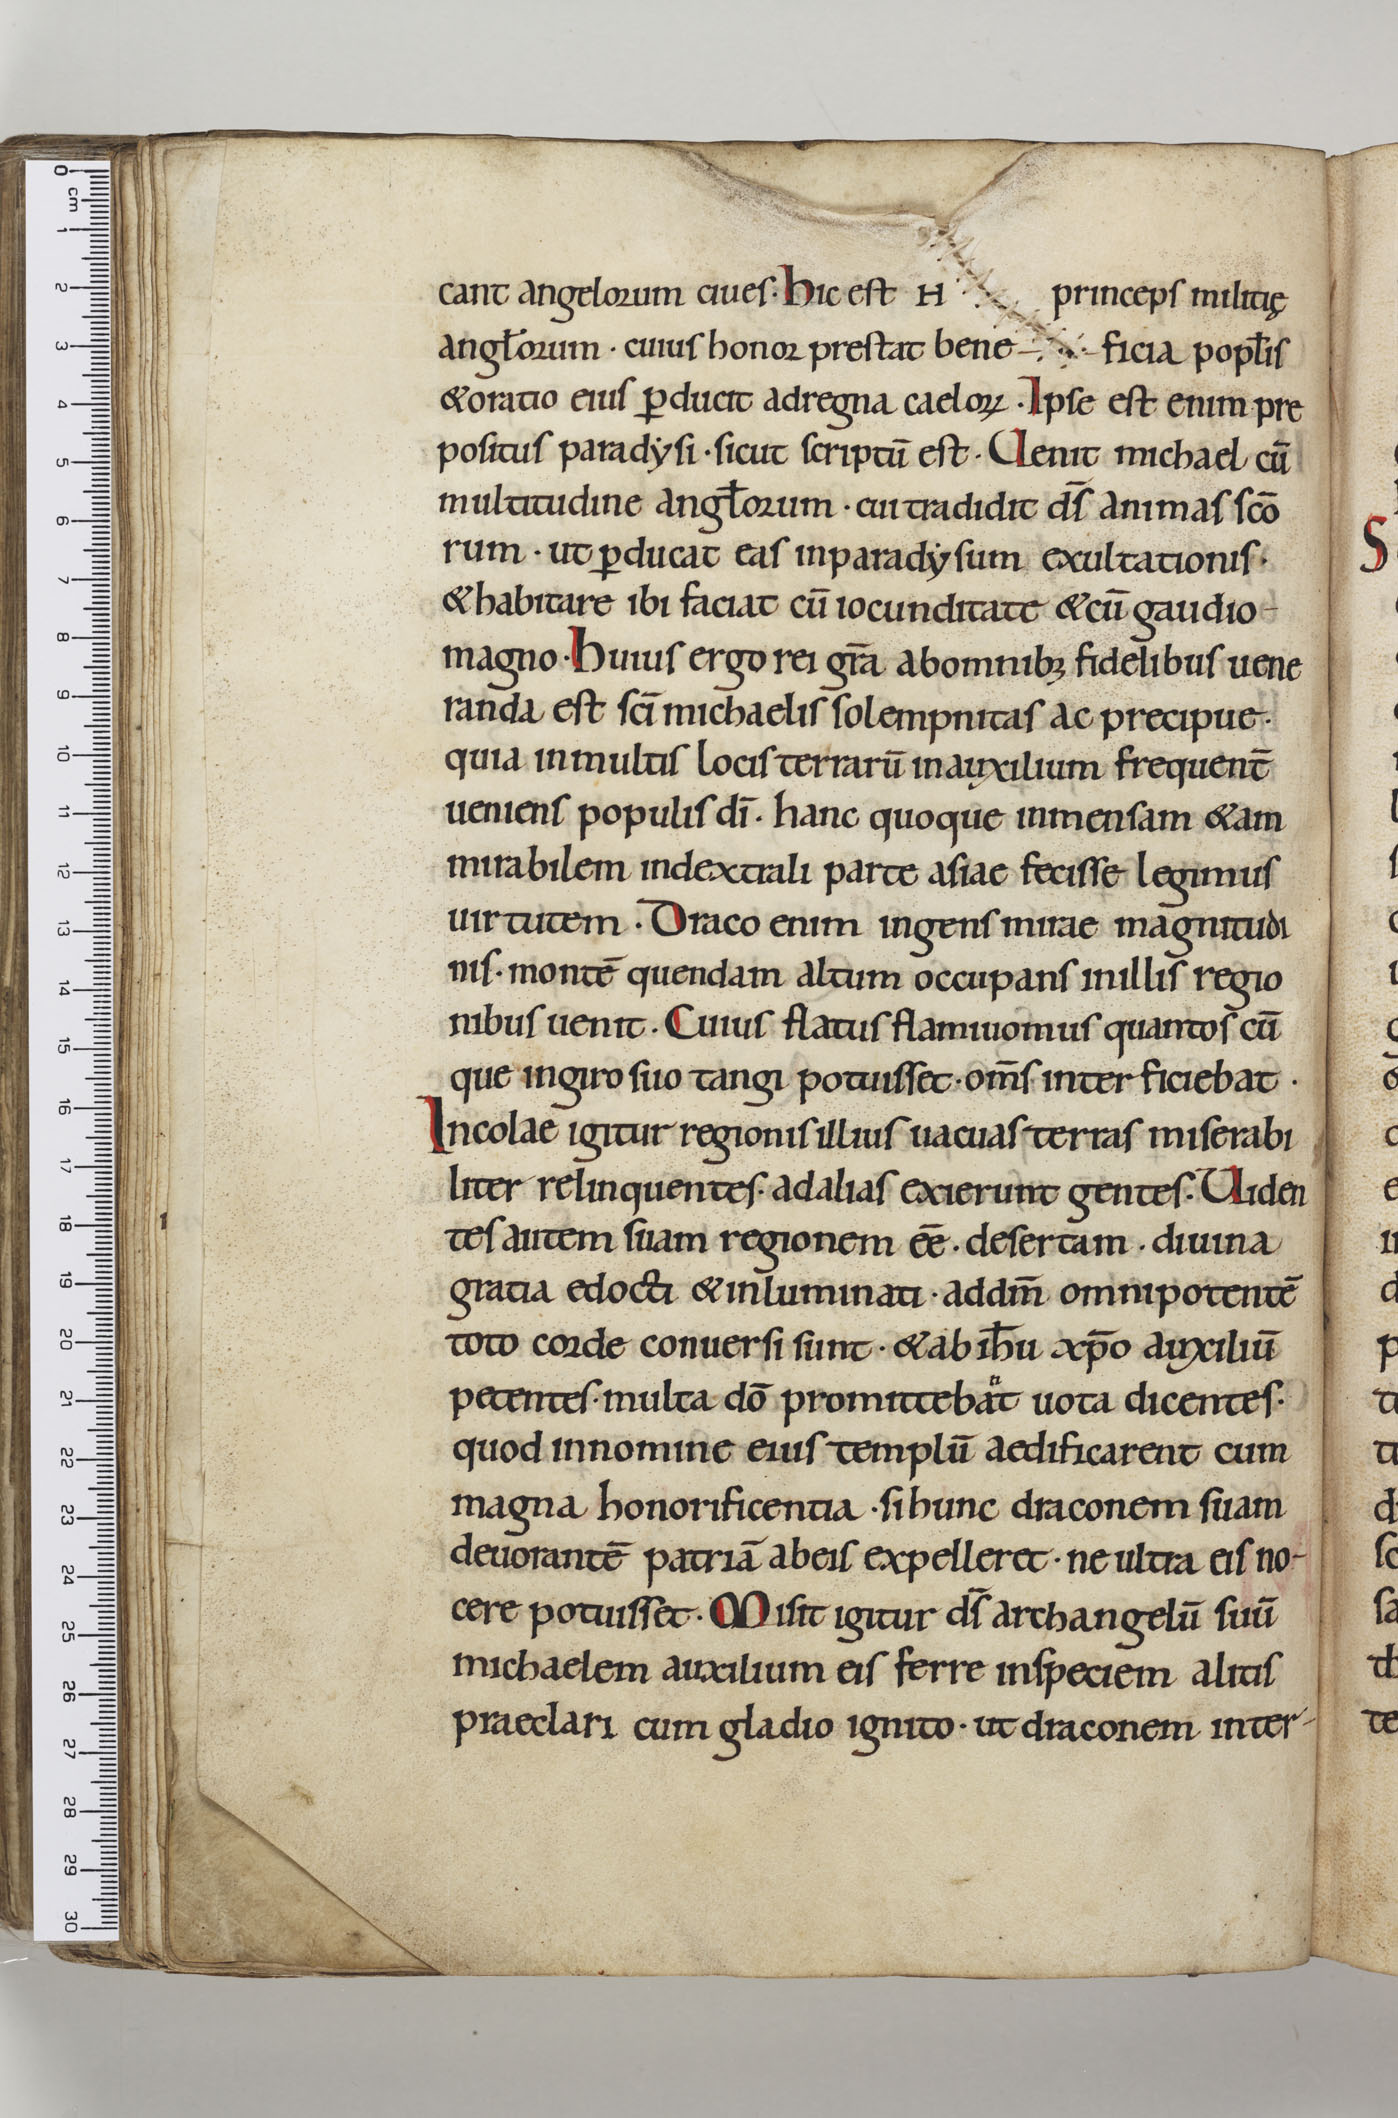 cant angelorum ciues· Hic est H princeps militię
angl̄orum · cuius honor prestat bene- -ficia popl̄is
& oratio eius ꝑducit ad regna caeloꝝ · Ipse est enim pre
positus paradẏsi · sicut scriptū est · Uenit michael cū
multitudine angl̄orum · cui tradidit dr̄s animas scō
rum · ut ꝑducat eas in paradẏsum exultationis ·
& habitare ibi faciat cū iocunditate & cū gaudio
magno · Huius ergo rei gr̄a ab omnibꝫ fidelibus uene
randa est sc̄i michaelis solempnitas ac precipue ·
quia in multis locis terrarū in auxilium frequent̄
ueniens populis dī · hanc quoque inmensam & am
mirabilem in dextrali parte asiae fecisse legimus
uirtutem · Draco enim ingens mirae magnitudi
nis · montē quendam altum occupans in illis regio
nibus uenit · Cuius flatus flamiuomus quantos cū
que in giro suo tangi potuisset · om̄s interficiebat ·
Incolae igitur regionis illius uacuas terras miserabi
liter relinquentes · ad alias exierunt gentes · Uiden
tes autem suam regionem eē · desertam · diuina
gratia edocti & inluminati · ad dm̄ omnipotentē
toto corde conuersi sunt · & ab ih̄u xp̄o auxiliū
petentes · multa dō promittebat uota dicentes ·
quod in nomine eius templū aedificarent cum
magna honorificentia · si hunc draconem suam
deuorantē patriā ab eis expelleret · ne ultra eis no-
cere potuisset · Misit igitur ds̄ archangelū suū
michaelem auxilium eis ferre in speciem alitis
praeclari cum gladio ignito · ut draconem inter-